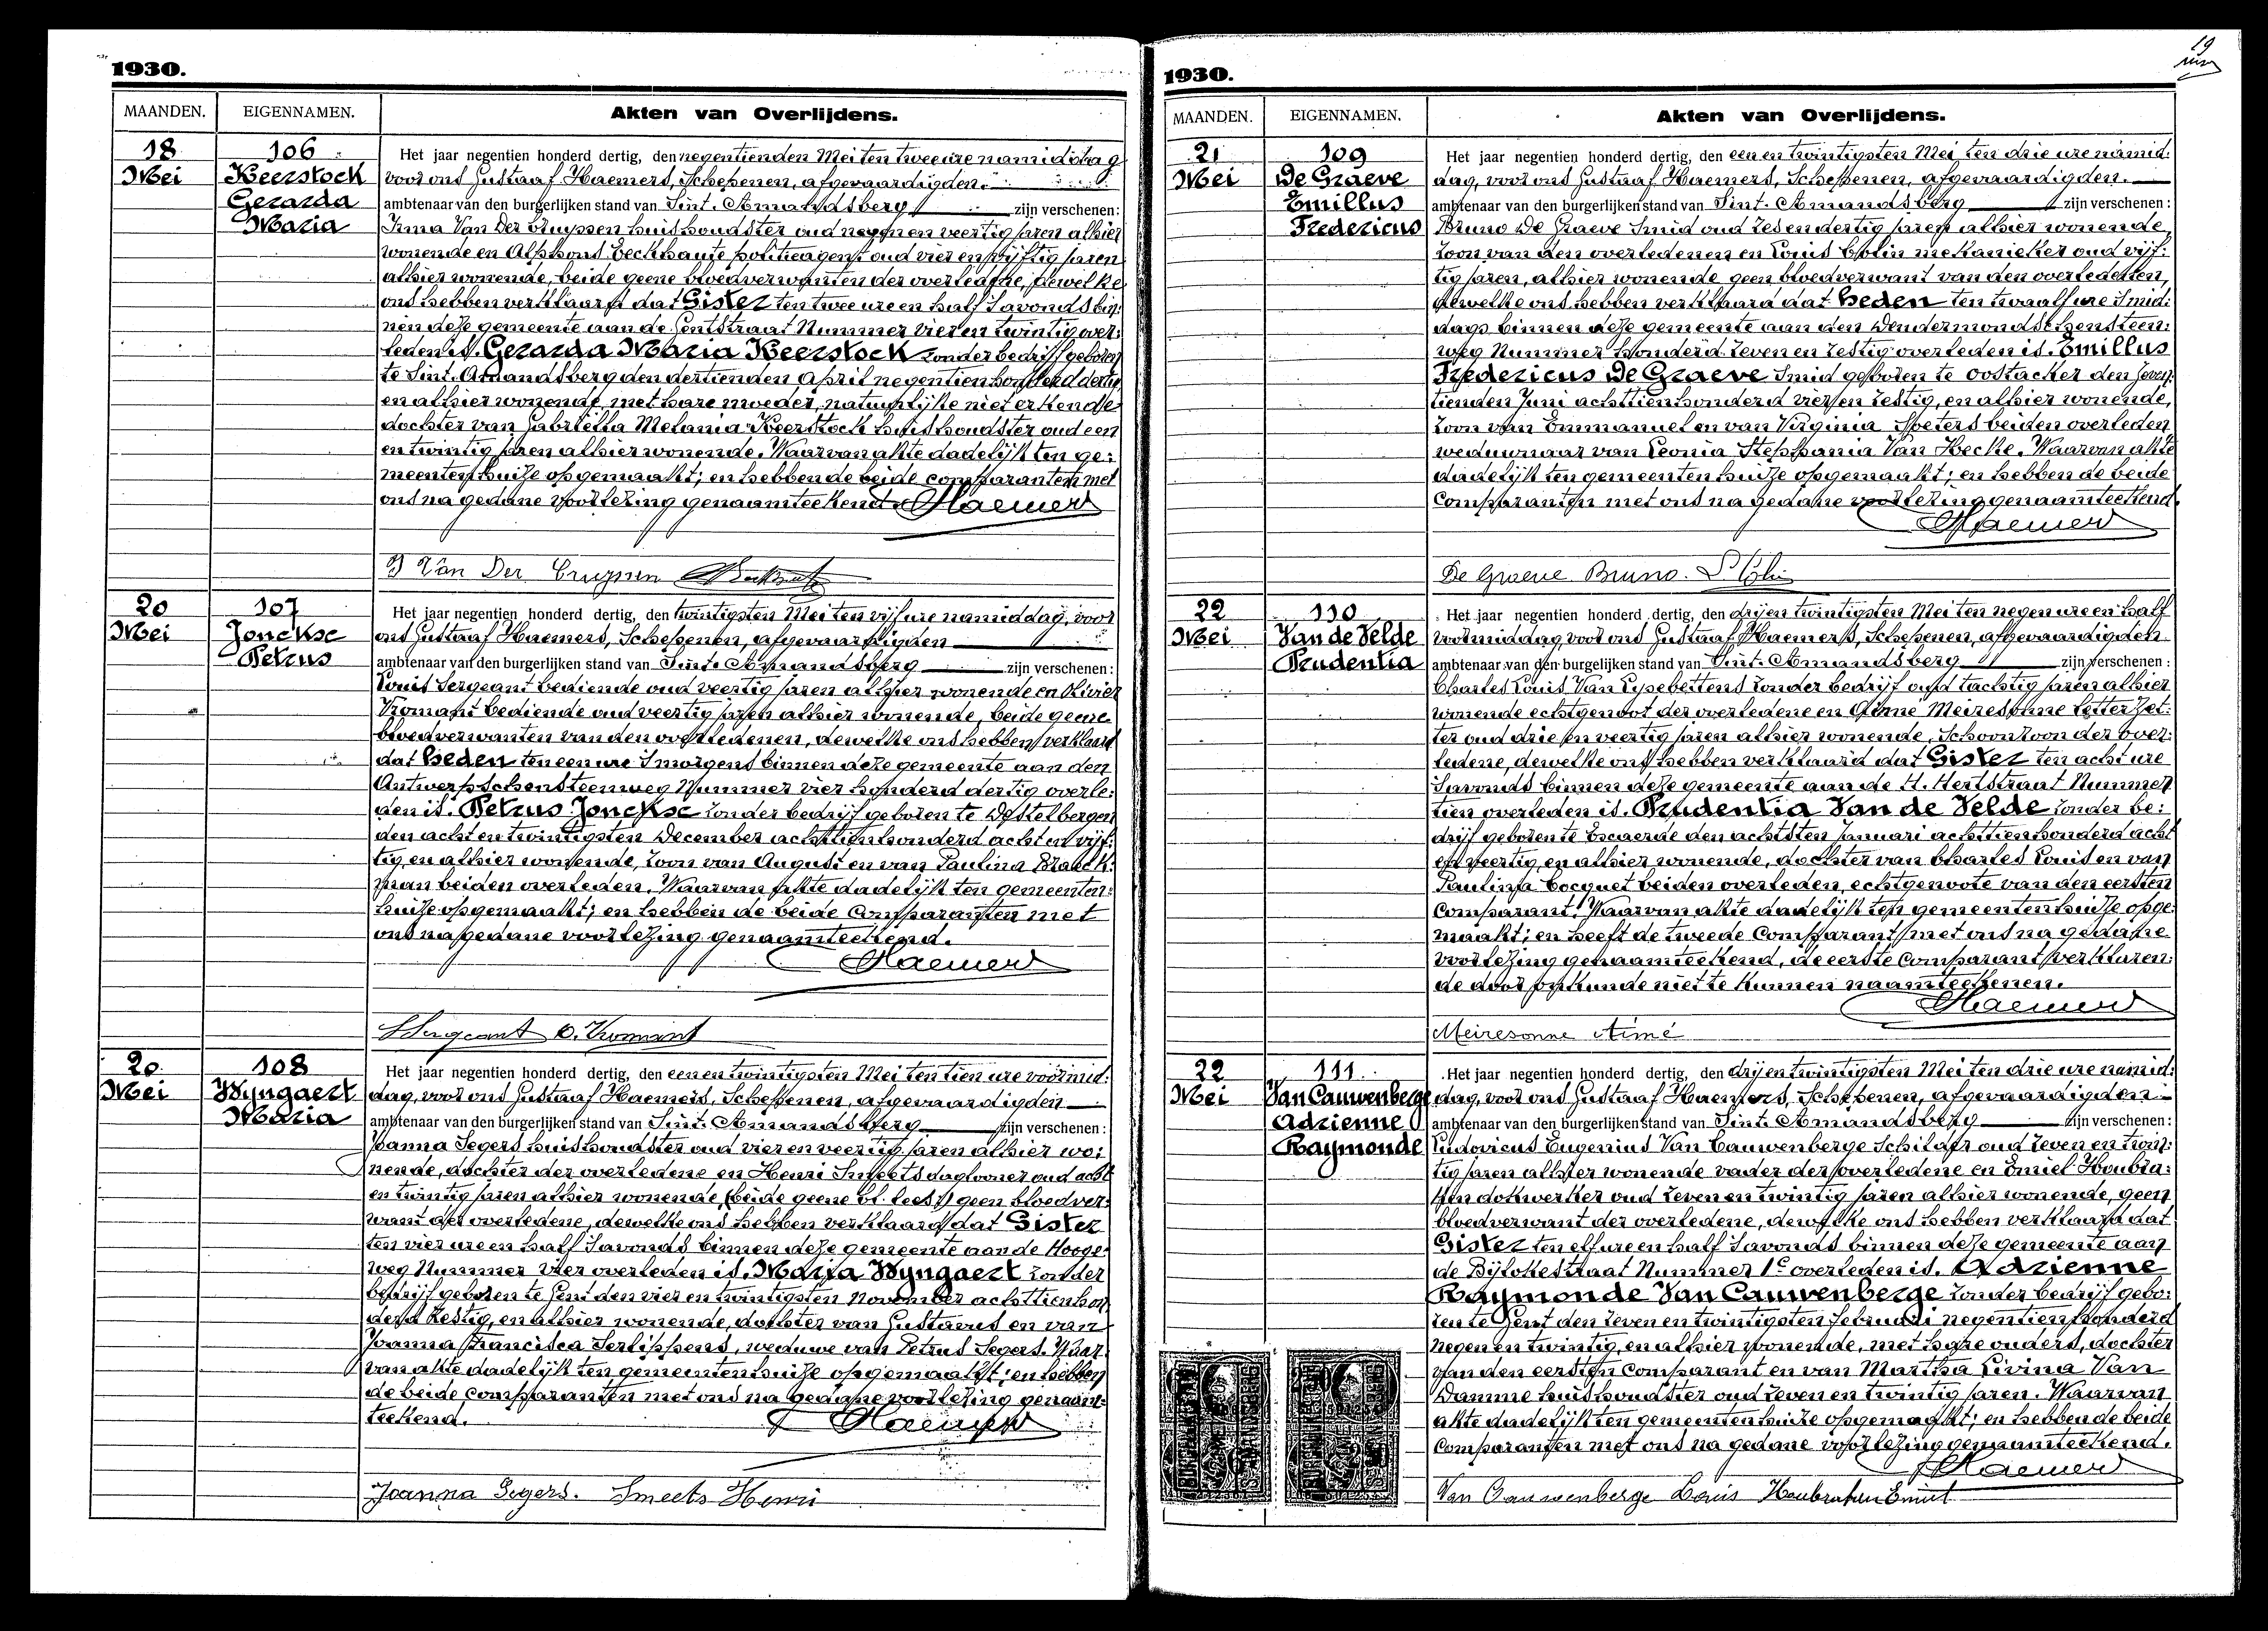 1930.
MAANDEN.
EIGENNAMEN.
Akten van Overlijdens.
18
Mei
106
Keerstock
Gerarda
Maria
Het jaar negentien honderd dertig, den negentienden Mei ten twee ure namiddag
voor ons Gustaaf Haemers, Schepenen, afgevaardigden
ambtenaar van den burgerlijken stand van Sint-Amandsberg zijn verschenen:
Irma Van Der Cruyssen huishoudster oud negen en veertig jaren alhier
wonende en Alphons Beckhaute politieagent oud vier en vijftig jaren
alhier wonende, beide geene bloedverwanten der overledene, dewelke
ons hebben verklaard dat Gister ten twee ure en half 's avonds bin:
nen deze gemeente aan de Gentstraat Nummer vier en twintig over:
leden is. Gerarda Maria Keerstock zonder bedrijf geboren
te Sint-Amandsberg den dertienden April negentien honderd dertig
en alhier wonende met hare moeder, natuurlijke niet erkende
dochter van Gabriella Melania Keerstock huishoudster oud een
en twintig jaren alhier wonende. Waarvan akte dadelijk ten ge:
meentenhuize opgemaakt; en hebben de beide comparanten met
ons na gedane voorlezing genaamteekend. Haemers
I Van Der Cruyssen
20
Mei
107
Jonckse
Petrus
Het jaar negentien honderd dertig, den twintigsten Mei ten vijf ure namiddag, voor
ons Gustaaf Haemers, Schepenen, afgevaardigden
ambtenaar van den burgerlijken stand van Sint-Amandsberg zijn verschenen:
Louis Sergeant bediende oud veertig jaren alhier wonende en Olivier
Vromant bediende oud veertig jaren alhier wonende, beide geene
bloedverwanten van den overledenen, dewelke ons hebben verklaard
dat Heden ten een ure 's morgens binnen deze gemeente aan den
Antwerpschensteenweg Nummer vier honderd dertig overle:
den is. Petrus Jonckse zonder bedrijf geboren te Destelbergen
den acht en twintigsten December achttien honderd acht en vijf:
tig, en alhier wonende, zoon van August en van Paulina Braeck:
man beiden overleden. Waarvan akte dadelijk ten gemeenten:
huize opgemaakt; en hebben de beide Comparanten met
ons na gedane voorlezing genaamteekend.
Haemers
L Sergeant O. Vromant
20
Mei
108
Wyngaert
Maria
Het jaar negentien honderd dertig, den een en twintigsten Mei ten tien ure voormid:
dag, voor ons Gustaaf Haemers, Schepenen, afgevaardigden
ambtenaar van den burgerlijken stand van Sint-Amandsberg zijn verschenen:
Joanna Segers huishoudster oud vier en veertig jaren alhier wo:
nende, dochter der overledene en Henri Smeets daglooner oud acht
en twintig jaren alhier wonende, (beide geene bl. lees) geen bloedver:
want der overledene, dewelke ons hebben verklaard dat Gister
ten vier ure en half 's avonds binnen deze gemeente aan de Hooge:
weg Nummer vier overleden is. Maria Wyngaert zonder
bedrijf geboren te Gent den vier en twintigsten November achttien hon
derd zestig, en alhier wonende, dochter van Gustavus en van
Joanna Francisca Serlippens, weduwe van Petrus Segers. Waar
van akte dadelijk ten gemeentenhuize opgemaakt; en hebben
de beide Comparanten met ons na gedane voorlezing genaam:
teekend. Haemers
Joanna Segers. Smeets Henri
19
1930.
MAANDEN.
EIGENNAMEN.
Akten van Overlijdens.
21
Mei
109
De Graeve
Emillus
Fredericus
Het jaar negentien honderd dertig, den een en twintigsten Mei ten drie ure namid:
dag, voor ons Gustaaf Haemers, Schepenen, afgevaardigden.
ambtenaar van den burgerlijken stand van Sint-Amandsberg zijn verschenen:
Bruno De Graeve Smid oud zes en dertig jaren alhier wonende,
zoon van den overledenen en Louis Colin mekanieker oud vijf:
tig jaren, alhier wonende geen bloedverwant van den overledenen,
dewelke ons hebben verklaard dat Heden ten twaalf ure 's mid:
dags binnen deze gemeente aan den Dendermondschensteen:
weg Nummer honderd zeven en zestig overleden is. Emillus
Fredericus De Graeve Smid geboren te Oostacker den zeven:
tienden Juni achttien honderd vier en zestig, en alhier wonende,
zoon van Emmanuel en van Virginia Speters beiden overleden
weduwnaar van Leonia Stephania Van Hecke. Waarvan akte
dadelijk ten gemeentenhuize opgemaakt; en hebben de beide
Comparanten met ons na gedane voorlezing genaamteekend.
Haemers
De Graeve Bruno.
22
Mei
110
Van de Velde
Prudentia
Het jaar negentien honderd dertig, den drij en twintigsten Mei ten negen ure en half
voormiddag, voor ons Gustaaf Haemers, Schepenen, afgevaardigden
ambtenaar van den burgerlijken stand van Sint-Amandsberg zijn verschenen:
Charles Louis Van Lysebettens zonder bedrijf oud tachtig jaren alhier
wonende echtgenoot der overledene en Aimé Meiresonne Letterzet:
ter oud drie en veertig jaren alhier wonende, Schoonzoon der over:
ledene, dewelke ons hebben verklaard dat Gister ten acht ure
's avonds binnen deze gemeente aan de H. Hertstraat Nummer
tien overleden is. Prudentia Van de Velde zonder be:
drijf geboren te Excaerde den achtsten Januari achttien honderd acht
en veertig, en alhier wonende, dochter van Charles Louis en van
Paulina Cocquet beiden overleden, echtgenoote van den eersten
Comparant. Waarvan akte dadelijk ten gemeentenhuize opge:
maakt; en heeft de tweede Comparant met ons na gedane
voorlezing genaamteekend, de eerste Comparant verklaren:
de door onkunde niet te kunnen naamteekenen.
Haemers
Meiresonne Aimé
22
Mei
111
Van Cauwenberge
Adrienne
Raymonde
Het jaar negentien honderd dertig, den drij en twintigsten Mei ten drie ure namid:
dag, voor ons Gustaaf Haemers, Schepenen, afgevaardigden
ambtenaar van den burgerlijken stand van Sint-Amandsberg zijn verschenen:
Ludovicus Eugenius Van Cauwenberge Schilder oud zeven en twin:
tig jaren alhier wonende vader der overledene en Emiel Houbra:
ken dokwerker oud zeven en twintig jaren alhier wonende, geen
bloedverwant der overledene, dewelke ons hebben verklaard dat
Gister ten elf ure en half 's avonds binnen deze gemeente aan
de Bijlokestraat Nummer 1c overleden is. Adrienne
Raymonde Van Cauwenberge zonder bedrijf gebo:
ren te Gent den zeven en twintigsten Februari negentien honderd
negen en twintig, en alhier wonende, met hare ouders, dochter
van den eersten Comparant en van Martha Livina Van
Damme huishoudster oud zeven en twintig jaren. Waarvan
akte dadelijk ten gemeentenhuize opgemaakt; en hebben de beide
Comparanten met ons na gedane voorlezing genaamteekend.
Haemers
Van Cauwenberge Louis Houbraken Emiel